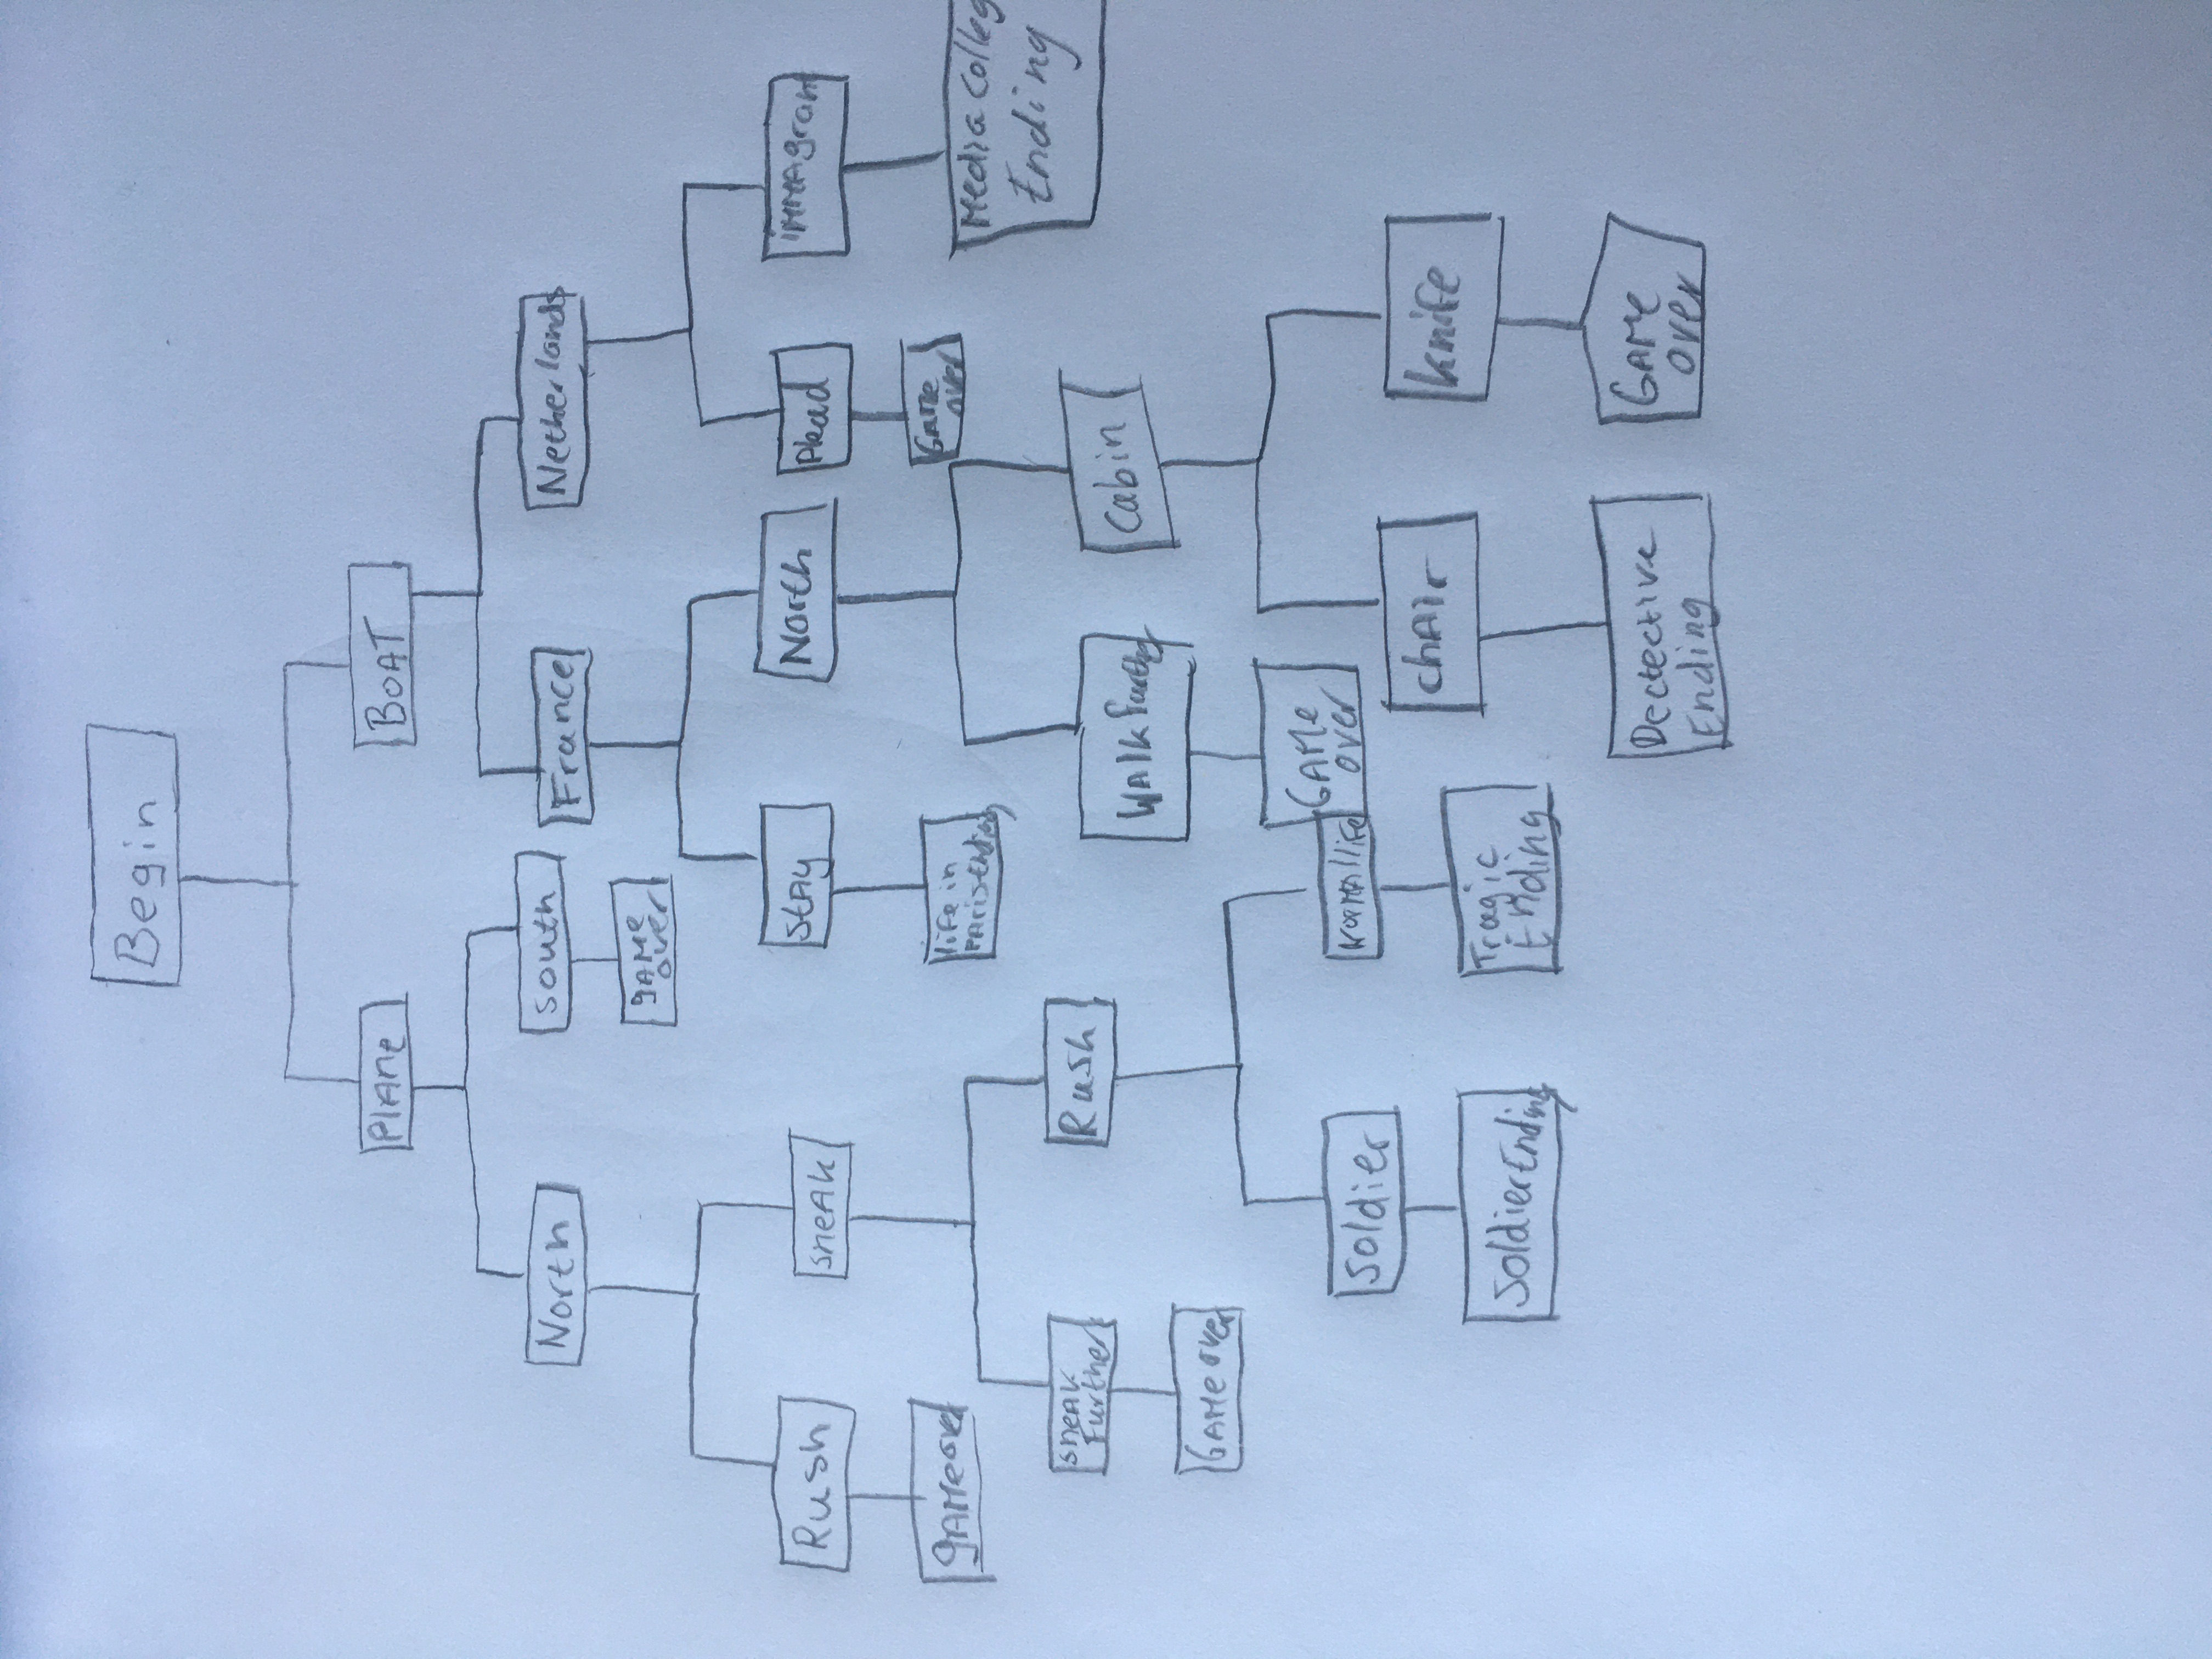 Begin
PlAne
BOAT
North
south
France
Netherlands
gAMe
over
Rush
sneAk
StAy
North
Plead
iMMAgrant
gAMeover
life in
PArisEnding
GAMe
over
MediA Colleg
Ending
sneAk
Further
Rush
WAlk further
Cabin
GAMe over
GAMe
over
Soldier
NorMAl life
chAir
knife
SoldierEnding
Tragic
Ending
Dectective
Ending
GAMe
over